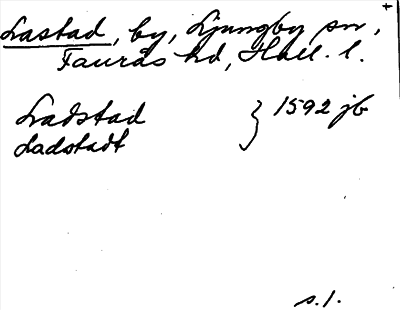 Lastad, by, Ljungby sn,
Faurås hd, Hall. l.
Ladstad } 1592 jb
Ladstadt
s. 1.